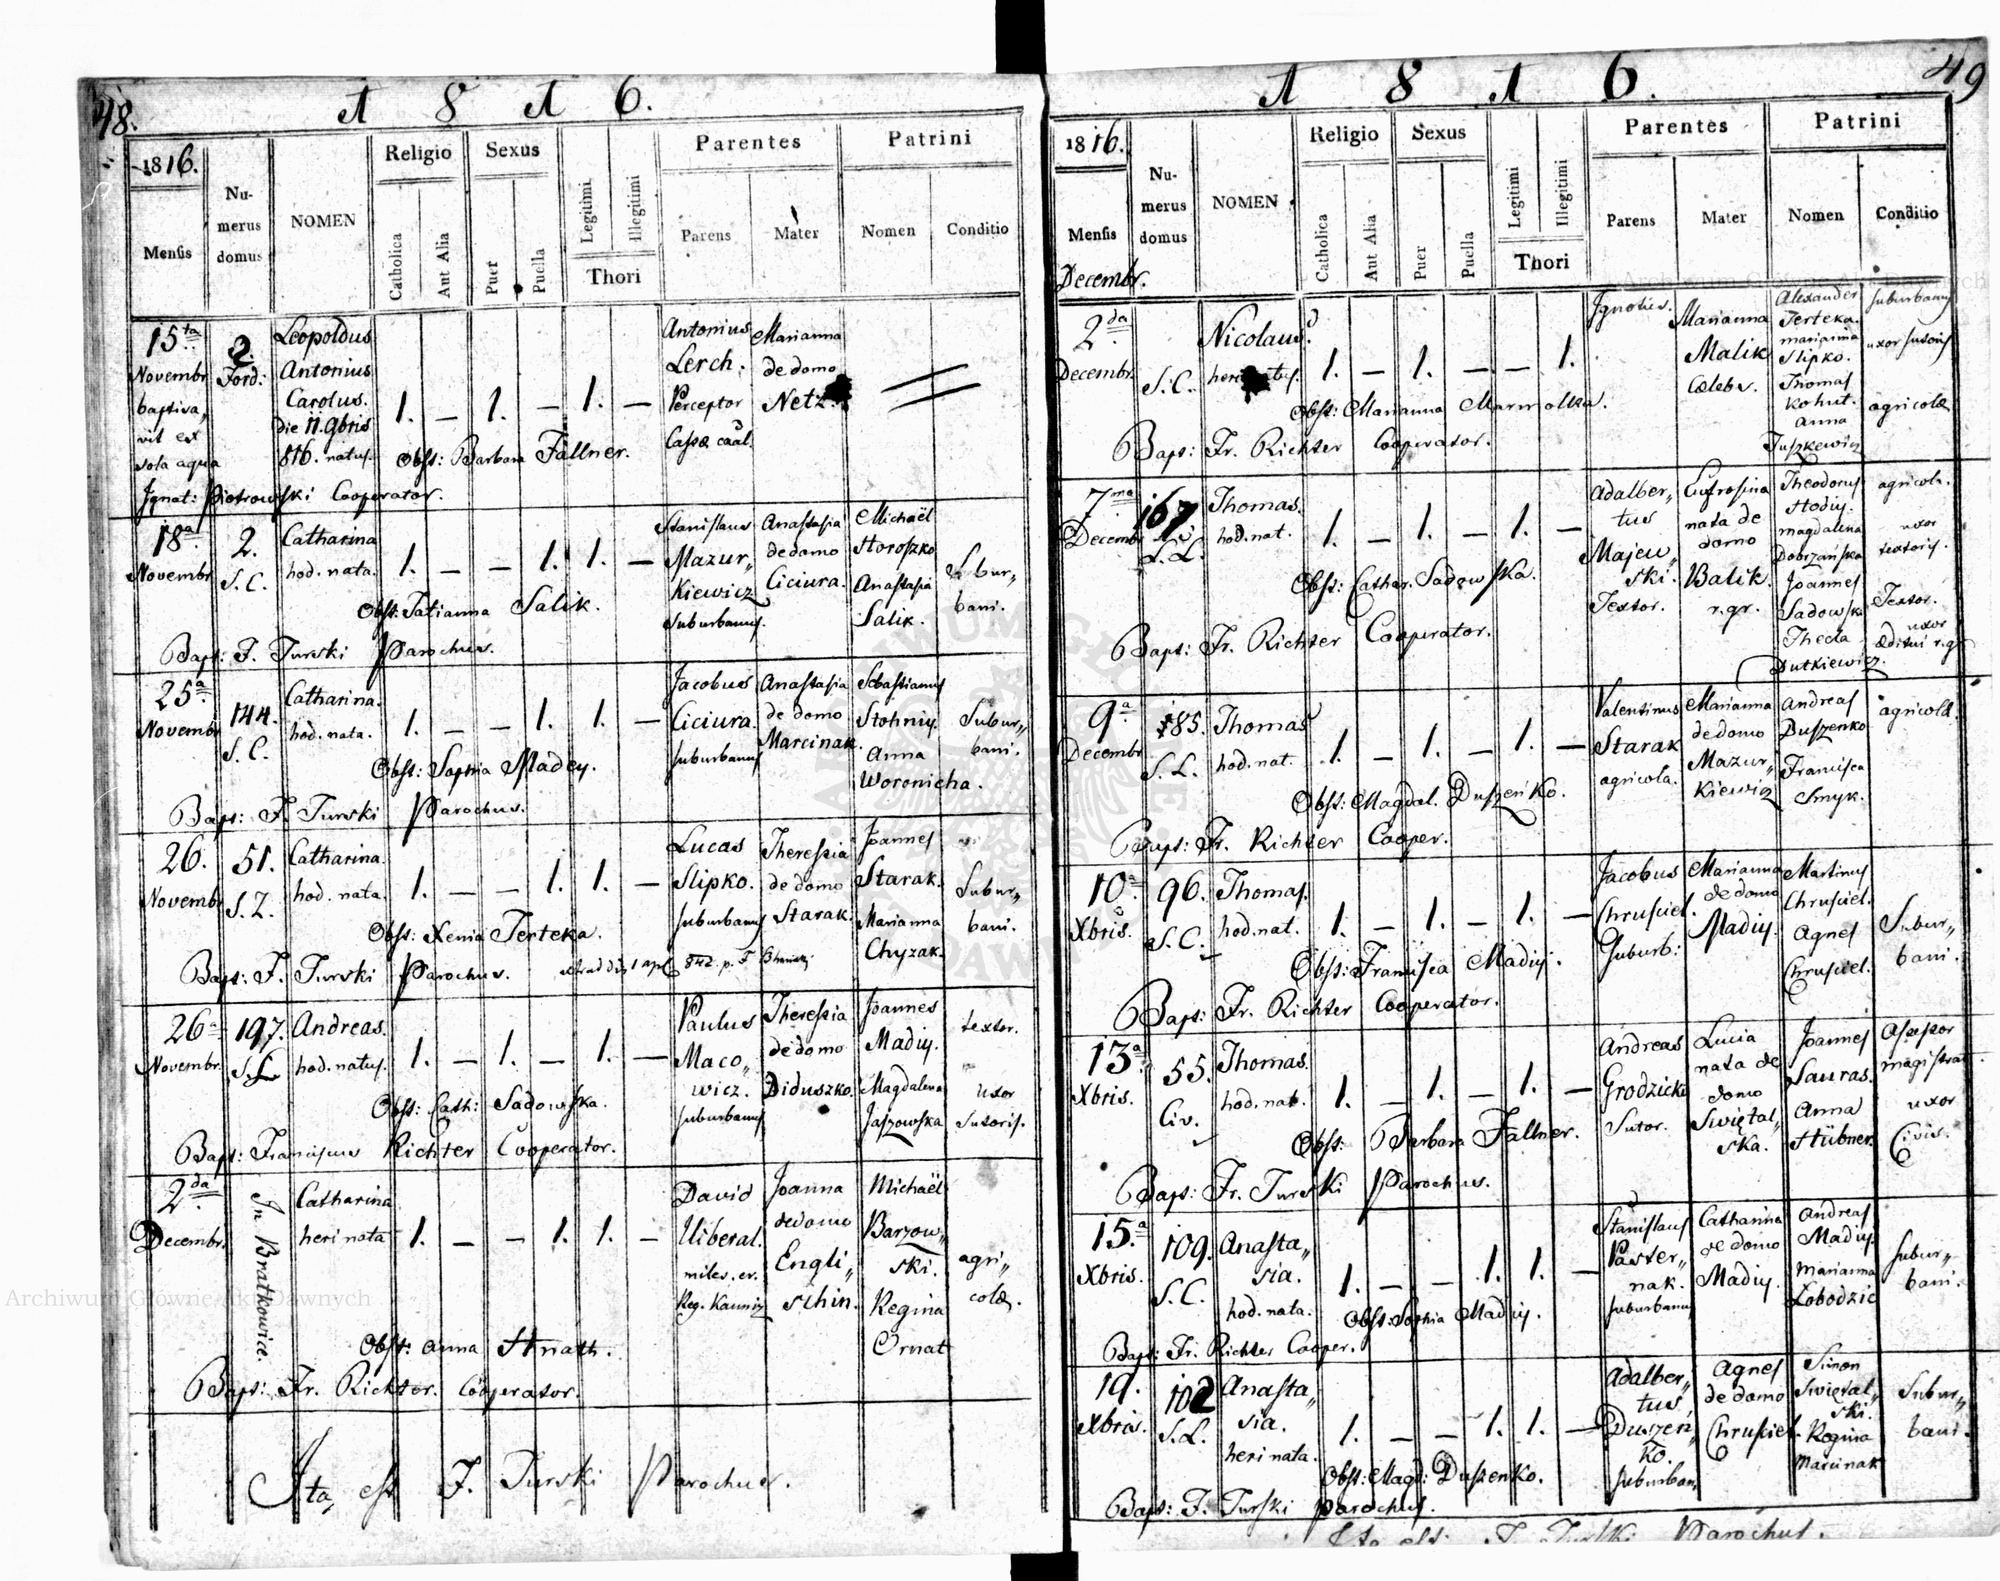 48.
1 8 1 6.
1816.
Mensis
Numerus domus
NOMEN
Religio
Catholica
Aut Alia
Sexus
Puer
Puella
Legitimi
Illegitimi
Thori
Parentes
Parens
Mater
Patrini
Nomen
Conditio
15ta
Novembr.
baptisa„
vit ex
sola aqua
Ignat: Piotrowski Cooperator.
2.
Ford:
Leopoldus
Antonius
Carolus.
die 11. 9bris
816. natus.
1. — 1. — 1. —
Obst: Barbara Fallner.
Antonius
Lerch.
Perceptor
Cassæ caál.
Marianna
de domo
Netz.
18a
Novembr.
2.
S. C.
Catharina
hod. nata.
1. — — 1. 1. —
Obst: Tatianna Salik.
Bapt: F. Turski Parochus.
Stanislaus
Mazur„
Kiewicz
suburbanus.
Anastasia
de domo
Ciciura.
Michaël
Horoszko
Anastasia
Salik.
Subur„
bani.
25a
Novembr.
144.
S. C.
Catharina.
hod. nata.
1. — — 1. 1. —
Obst: Sophia Madey.
Bapt: F. Turski Parochus.
Jacobus
Ciciura.
suburbanus
Anastasia
de domo
Marcinak.
Sebastianus
Stohniy.
Anna
Woronicha.
Subur„
bani.
26.
Novembr.
51.
S. Z.
Catharina.
hod. nata.
1. — — 1. 1. —
Obst: Xenia Terteka.
Bapt: F. Turski Parochus.
Lucas
Slipko.
suburbanus
Theressia
de domo
Starak.
Joannes
Starak.
Marianna
Chyzak.
Subur„
bani.
26a
Novembr.
197.
S. L.
Andreas.
hod. natus.
1. — 1. — 1. —
Obst: Cath: Sadowska.
Bapt: Franciscus Richter Cooperator.
Paulus
Maco„
wicz.
suburbanus
Theressia
de domo
Diduszko.
Joannes
Madiy.
Magdalena
Jaszowska
textor.
uxor
Sutoris.
2da
Decembr.
In Bratkowice.
Catharina
heri nata
1. — — 1. 1. —
Obst: Anna Hnath.
Bapt: Fr. Richter. Cooperator.
David
Uiberal.
miles. ex.
Reg. Kauniz
Joanna
de domo
Engli„
schin.
Michaël
Barzow„
ski.
Regina
Ornat
agri„
colæ.
Ita est F. Turski Parochus.
49
1 8 1 6.
1816.
Mensis
Decembr.
Numerus domus
NOMEN
Religio
Catholica
Aut Alia
Sexus
Puer
Puella
Legitimi
Illegitimi
Thori
Parentes
Parens
Mater
Patrini
Nomen
Conditio
2da
Decembr.
S. C.
Nicolaus.
heri natus.
1. — 1. — — 1.
Obst: Marianna Marmolka.
Bapt: Fr. Richter Cooperator.
Ignotus.
Marianna
Malik
Cælebs.
Alexander
Terteka.
marianna
Slipko.
Thomas
Kohut.
Anna
Juszkewicz
suburbanus
uxor sutoris
agricolæ
7ma
Decembr.
167
S. L.
Thomas.
hod. nat.
1. — 1. — 1. —
Obst: Cathar. Sadowska.
Bapt: Fr. Richter Cooperator.
Adalber„
tus
Majew„
ski.
Textor.
Eufrosina
nata de
domo
Balik.
r. gr.
Theodorus
Hodiy.
magdalena
Dobrzańska
Joannes
Sadowski
Thecla
Dutkiewicz.
agricola.
uxor
textoris.
Textor.
uxor
Æditui r. gr
9a
Decembr.
185.
S. L.
Thomas
hod. nat.
1. — 1. — 1. —
Obst: Magdal. Duszeńko.
Bapt: Fr. Richter Cooper.
Valentinus
Starak
agricola.
Marianna
de domo
Mazur„
Kiewicz
Andreas
Duszenko
Francisca
Smyk.
agricolæ.
10a
Xbris.
96.
S. C.
Thomas.
hod. nat.
1. — 1. — 1. —
Obst: Francisca Madiy.
Bapt: Fr. Richter Cooperator.
Jacobus
Chrusciel.
Suburb:
Marianna
de domo
Madiy.
Martinus
Chrusciel.
Agnes
Chrusciel.
Subur„
bani.
13a
Xbris.
55.
Civ.
Thomas.
hod. nat.
1. — 1. — 1. —
Obst: Barbara Fallner.
Bapt: Fr. Turski Parochus.
Andreas
Grodzicki
Sutor.
Lucia
nata de
domo
Swiętal„
ska.
Joannes
Sauras.
Anna
Hübner.
Assessor
magistrat.
uxor
Civis.
15.a
Xbris.
109.
S. C.
Anasta„
sia.
hod. nata.
1. — — 1. 1. —
Obst: Sophia Madiy.
Bapt: Fr. Richter Cooper.
Stanislaus
Paster„
nak.
suburbanus
Catharina
de domo
Madiy.
Andreas
Madiy.
marianna
Łobodzic
subur„
bani.
19.
Xbris.
102
S. L.
Anasta„
sia.
heri nata.
1. — — 1. 1. —
Obst: Magd: Duszenko.
Bapt: F. Turski Parochus.
Adalber„
tus
Duszeń„
ko.
suburban.
Agnes
de domo
Chrusciel.
Simon
Swiętal„
ski.
Regina
Marcinak
Subur„
bani.
Ita est. F. Turski Parochus.
Archiwum Główne Akt Dawnych